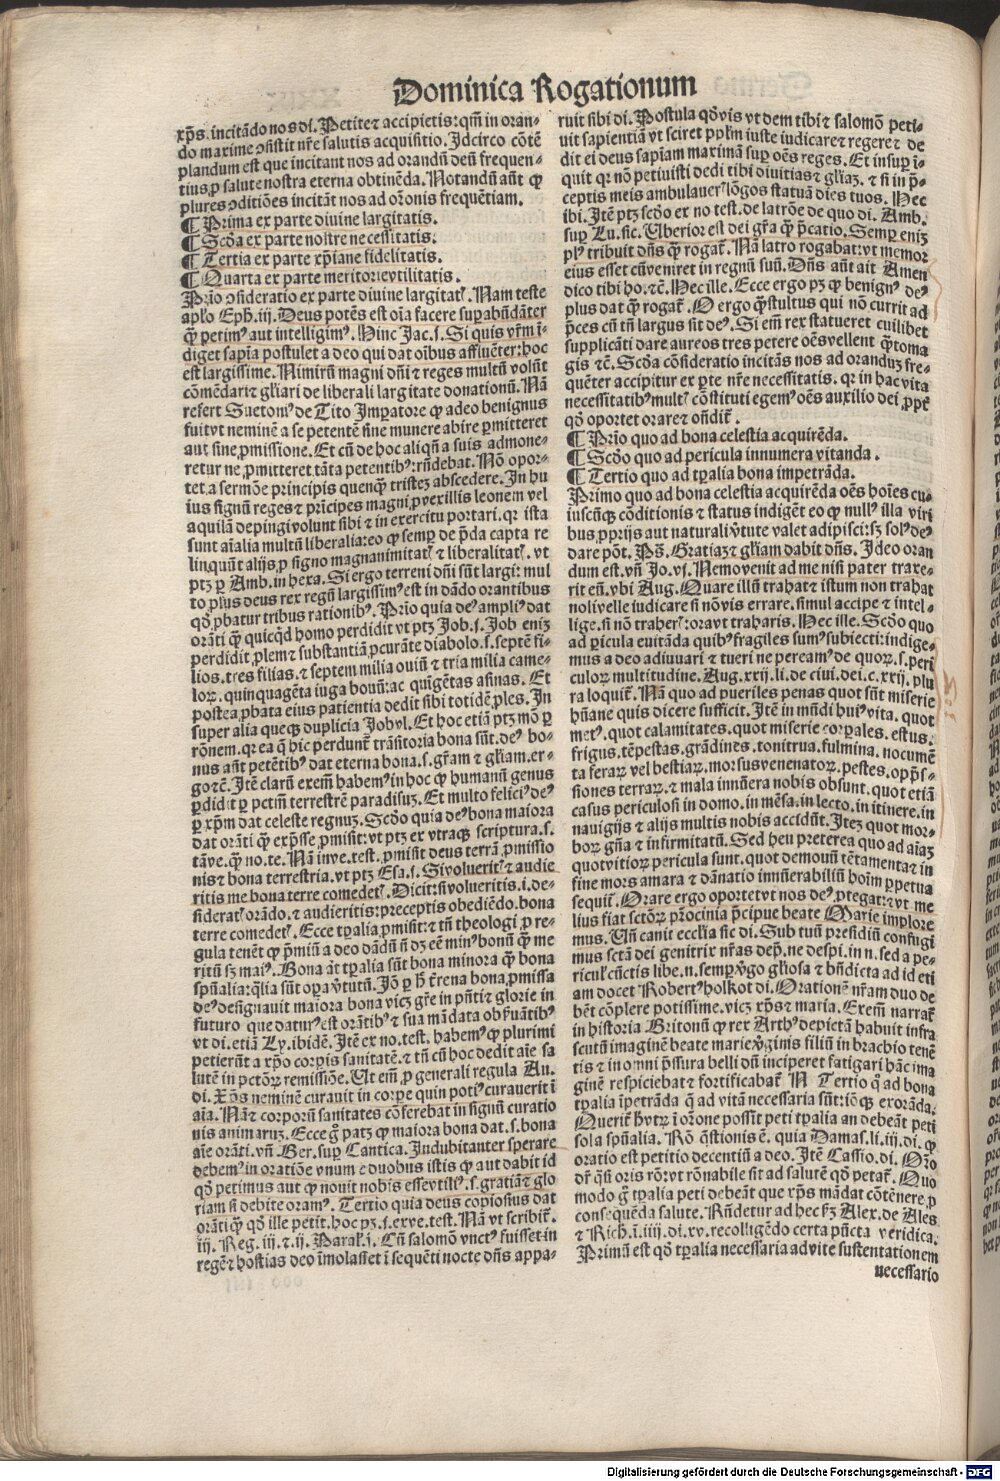 Dominica Rogationum
xp̄s. incitādo nos di. Petite ⁊ accipietis: qm̄ in oran-
do maxime ꝯsistit nr̄e salutis acquisitio. Idcirco cōtē
plandum est que incitant nos ad orandū deū frequen-
tius, ꝓ salute nostra eterna obtinēda. Notandū aūt ꝙ
plures ꝯditiōes incitāt nos ad orōnis frequētiam.
¶ Prima ex parte diuine largitatis.
¶ Scd̄a ex parte nostre necessitatis.
¶ Tertia ex parte xp̄iane fidelitatis.
¶ Quarta ex parte meritorie vtilitatis.
Prīo ꝯsideratio ex parte diuine largitatꝭ. Nam teste
aplo Eph. iij. Deus potēs est oīa facere suꝑabūdāter
ꝙ̄ petimꝰ aut intelligimꝰ. Hinc Jac. ſ. Si quis vr̄m ī-
diget sapīa postulet a deo qui dat oībus affluēter: hoc
est largissime. Nimirū magni dn̄i ⁊ reges multū volūt
cōmēdari ⁊ gl̄iari de liberali largitate donationū. Nā
refert Suetonꝰ de Tito Imꝑatore ꝙ adeo benignus
fuit vt neminē a se petentē sine munere abire ꝑmitteret
aut sine ꝓmissione. Et cū de hoc aliqn̄ a suis admone-
retur ne ꝓmitteret tāta petentibꝰ: rn̄debat. Nō opor-
tet a sermōe principis quenqȝ tristeȝ abscedere. In hu
ius signū reges ⁊ prīcipes magni ꝓ vexillis leonem vel
aquilā depingi volunt sibi ⁊ in exercitu portari. qr ista
sunt aīalia multū liberalia: eo ꝙ semꝑ de p̄da capta re
linquūt alijs, ꝓ signo magnanimitatꝭ ⁊ liberalitatꝭ. vt
ptȝ ꝑ Amb. in hexa. Si ergo terreni dn̄i sūt largi: mul
to plus deus rex regū largissimꝰ est in dādo orantibus
qd̄ ꝓbatur tribus rationibꝰ. Prīo quia deꝰ ampliꝰ dat
orāti ꝙ̄ quicqd̄ homo perdidit vt ptȝ Job. ſ. Job eniȝ
perdidit ꝓlem ⁊ substantiā ꝓcurāte diabolo. ſ. septē fi-
lios. tres filias. ⁊ septem milia ouiū ⁊ tria milia came-
loꝝ. quinquagēta iuga bouū: ac quīgētas asinas. Et
postea ꝓbata eius patientia dedit sibi totidē ꝓles. In
super alia queqȝ duplicia Job vl. Et hoc etiā ptȝ mō ꝑ
rōnem. qr ea ꝙ̄ hic perdunt trāsitoria bona sūt. deꝰ bo-
nus aūt petētibꝰ dat eterna bona. ſ. gr̄am ⁊ gl̄iam. er-
go ⁊c̄. Itē clarū exem̄ habemꝰ in hoc ꝙ humanū genus
ꝑdidit ꝑ pctm̄ terrestrē paradisuȝ. Et multo feliciꝰ deꝰ
ꝑ xp̄m dat celeste regnuȝ. Scd̄o quia deꝰ bona maiora
dat orāti ꝙ̄ exp̄sse ꝓmisit: vt ptȝ ex vtraqȝ scriptura. ſ.
tā ve. ꝙ̄ no. te. Nā in ve. test. ꝓmisit deus terrā ꝓmissio
nis ⁊ bona terrestria. vt ptȝ Esa. ſ. Si volueritꝭ ⁊ audie
ritis me bona terre comedetꝭ. Dicit: si volueritis. i. de-
sideratꝭ orādo. ⁊ audieritis: preceptis obediēdo. bona
terre comedetꝭ. Ecce tꝑalia ꝓmisit: ⁊ tn̄ theologi ꝓ re-
gula tenēt ꝙ p̄miū a deo dādū n̄ dȝ eē minꝰ bonū ꝙ̄ me
ritū sȝ maiꝰ. Bona āt tꝑalia sūt bona minora ꝙ̄ bona
spūalia: q̄lia sūt oꝑa v̄tutū. Iō ꝑ h̄ t̄rena bona ꝓmissa
deꝰ designauit maiora bona vicȝ gr̄e in pn̄ti ⁊ glorie in
futuro que daturꝰ est orātibꝰ ⁊ sua mādata obs̄uātibꝰ
vt di. etiā Ly. ibidē. Itē ex no. test. habemꝰ ꝙ plurimi
petierūt a xp̄o corꝑis sanitatē. ⁊ tn̄ cū hoc dedit aīe sa
lutē in pctōꝝ remissiōe. Ut em̄ ꝓ generali regula Au.
di. Xp̄s neminē curauit in corꝑe quin potiꝰ curauerit ī
aīa. Nā ⁊ corporū sanitates cōferebat in signū curatio
nis animaruȝ. Ecce gͦ patȝ ꝙ maiora bona dat. ſ. bona
aīe orāti. vn̄ Ber. suꝑ Cantica. Indubitanter sperare
debemꝰ in oratiōe vnum e duobus istis ꝙ aut dabit id
qd̄ petimus aut ꝙ nouit nobis esse vtiliꝰ. ſ. gratiā ⁊ glo
riam si debite oramꝰ. Tertio quia deus copiosius dat
orāti ꝙ̄ qd̄ ille petit. hoc pȝ. ſ. ex ve. test. Nā vt scribitꝭ.
iij. Reg. iij. ⁊. ij. Paral. i. Cū salomō vnctꝰ fuisset in
regē ⁊ hostias deo īmolasset ī sequēti nocte dn̄s appa-
ruit sibi di. Postula qd̄ vis vt dem tibi ⁊ salomō peti-
uit sapientiā vt sciret pplm̄ iuste iudicare ⁊ regere ⁊ de
dit ei deus sapīam maximā suꝑ oēs reges. Et insuꝑ ī-
quit qr nō petiuisti dedi tibi diuitias ⁊ gl̄iaȝ. ⁊ si in p̄-
ceptis meis ambulauerꝭ lōgos statuā dies tuos. Hec
ibi. Itē ptȝ scd̄o ex no test. de latrōe de quo di. Amb.
suꝑ Lu. sic. Uberior est dei gr̄a ꝙ̄ p̄catio. Semꝑ eniȝ
plꝰ tribuit dn̄s ꝙ̄ rogatꝭ. Nā latro rogabat: vt memor
eius esset cū veniret in regnū suū. Dn̄s aūt ait Amen
dico tibi ho. ⁊c̄. Hec ille. Ecce ergo pȝ ꝙ benignꝰ deꝰ
plus dat ꝙ̄ rogatꝭ. O ergo ꝙ̄ stultus qui nō currit ad
p̄ces cū tn̄ largus sit deꝰ. Si em̄ rex statueret cuilibet
supplicāti dare aureos tres petere oēs vellent ꝙ̄to ma
gis ⁊c̄. Scd̄a cōsideratio incitās nos ad oranduȝ fre-
quēter accipitur ex ꝑte nr̄e necessitatis. qr in hac vita
necessitatibꝰ multꝭ cōstituti egemꝰ oēs auxilio dei ꝓpt̄
qd̄ oportet orare ⁊ on̄ditꝭ.
¶ Prīo quo ad bona celestia acquirēda.
¶ Scd̄o quo ad pericula innumera vitanda.
¶ Tertio quo ad tꝑalia bona impetrāda.
Primo quo ad bona celestia acquirēda oēs hoīes cu-
iuscūqȝ cōditionis ⁊ status indigēt eo ꝙ nullꝰ illa viri
bus ꝓprijs aut naturali v̄tute valet adipisci: sȝ solꝰ deꝰ
dare pōt. Ps̄. Gratiaȝ ⁊ gl̄iam dabit dn̄s. Ideo oran
dum est. vn̄ Jo. vj. Nemo venit ad me nisi pater traxe-
rit eū. vbi Aug. Quare illū trahat ⁊ istum non trahat
noli velle iudicare si nō vis errare. simul accipe ⁊ intel-
lige. si nō traheris: ora vt traharis. Hec ille. Scd̄o quo
ad ꝑicula euitāda quibꝰ fragiles sumꝰ subiecti: indige-
mus a deo adiuuari ⁊ tueri ne peream̄ꝰ de quoꝝ. ſ. peri
culoꝝ multitudine. Aug. xxij. li. de ciui. dei. c. xxij. plu
ra loquitꝭ. Nā quo ad pueriles penas quot sūt miserie
hūane quis dicere sufficit. Itē in mūdi huiꝰ vita. quot
metꝰ. quot calamitates. quot miserie corꝑales. estus.
frigus. tēpestas. grādines. tonitrua. fulmina. nocumē
ta feraꝝ vel bestiaꝝ. morsus venenatoꝝ. pestes. opp̄s-
siones terraꝝ. ⁊ mala innūera nobis obsunt. quot etiā
casus periculosi in domo. in mēsa. in lecto. in itinere. in
nauigijs ⁊ alijs multis nobis accidūt. Iteȝ quot mor-
boꝝ gn̄a ⁊ infirmitatū. Sed heu preterea quo ad aīaȝ
quot vitioꝝ pericula sunt. quot demonū tētamenta ⁊ in
fine mors amara ⁊ dānatio innūerabiliū hoīm ꝑpetua
sequitꝭ. Orare ergo oportet vt nos deꝰ ꝓtegat: ⁊ vt me
lius fiat sctōꝝ pr̄ocinia p̄cipue beate Marie implore
mus. Un̄ canit eccl̄ia sic di. Sub tuū presidiū confugi
mus sctā dei genitrix nr̄as dep̄. ne despi. in n. sed a pe-
riculꝭ cūctis libe. n. semꝑ v̄go gl̄iosa ⁊ bn̄dicta ad id eti
am docet Robertꝰ holkot di. Orationē nr̄am duo de
bēt cōplere potissime. vicȝ xp̄s ⁊ maria. Exem̄ narratꝭ
in historia Britonū ꝙ rex Arthꝰ depictā habuit infra
scutū imaginē beate marie v̄ginis filiū in brachio tenē
tis ⁊ in omni p̄ssura belli dū inciperet fatigari hāc ima
ginē respiciebat ⁊ fortificabatꝭ. N Tertio qͦ ad bona
tꝑalia īpetrāda qͦ ad vitā necessaria sūt: iō qȝ exorāda.
Queritꝭ h̄ vtꝝ ī orōne possīt peti tꝑalia an debeāt peti
sola spūalia. Rō q̄stionis ē. quia Damas. li. iij. di. ꝙ
oratio est petitio decentiū a deo. Itē Cassio. di. Orō
dr̄ q̄n oris rō: vt rōnabile sit ad salutē qd̄ petatꝭ. Quo
modo gͦ tꝑalia peti debeāt que xp̄s mādat cōtēnere ꝓ
consequēda salute. Rn̄detur ad hec ẜm Alex. de Ales
⁊ Rich. ī. iiij. di. xv. recolligēdo certa pūcta veridica.
Primū est qd̄ tꝑalia necessaria ad vite sustentationem
necessario
Digitalisierung gefördert durch die Deutsche Forschungsgemeinschaft - DFG